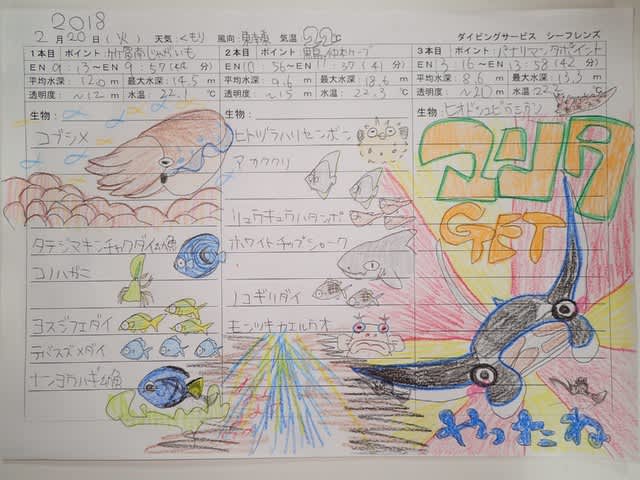 2018
2月20日(火) 天気:くもり 風向:東 気温 22℃ ダイビングサービス シーフレンズ
1本目 ポイント:竹富南じゃがいも
EN 9:13～EN 9:57(44分)
平均水深: 12.0m 最大水深: 14.5m
透明度: ～12m 水温: 22.1℃
生物:
コブシメ
タテジマキンチャクダイ幼魚
コノハガニ
ヨスジフエダイ
デバスズメダイ
ナンヨウハギ幼魚
2本目 ポイント:
EN 10:56～EN 11:37(41分)
平均水深: 9.6m 最大水深: 18.6m
透明度: ～15m 水温: 22.3℃
生物:
ヒトヅラハリセンボン
アカククリ
リュウキュウハタンポ
ホワイトチップシャーク
ノコギリダイ
モンツキカエルウオ
3本目 ポイント:パナリマンタポイント
EN 13:16～EN 13:58(42分)
平均水深: 8.6m 最大水深: 13.3m
透明度: ～20m 水温: 22
生物: ヒオドシユビウミウシ
マンタ
GET
やったね